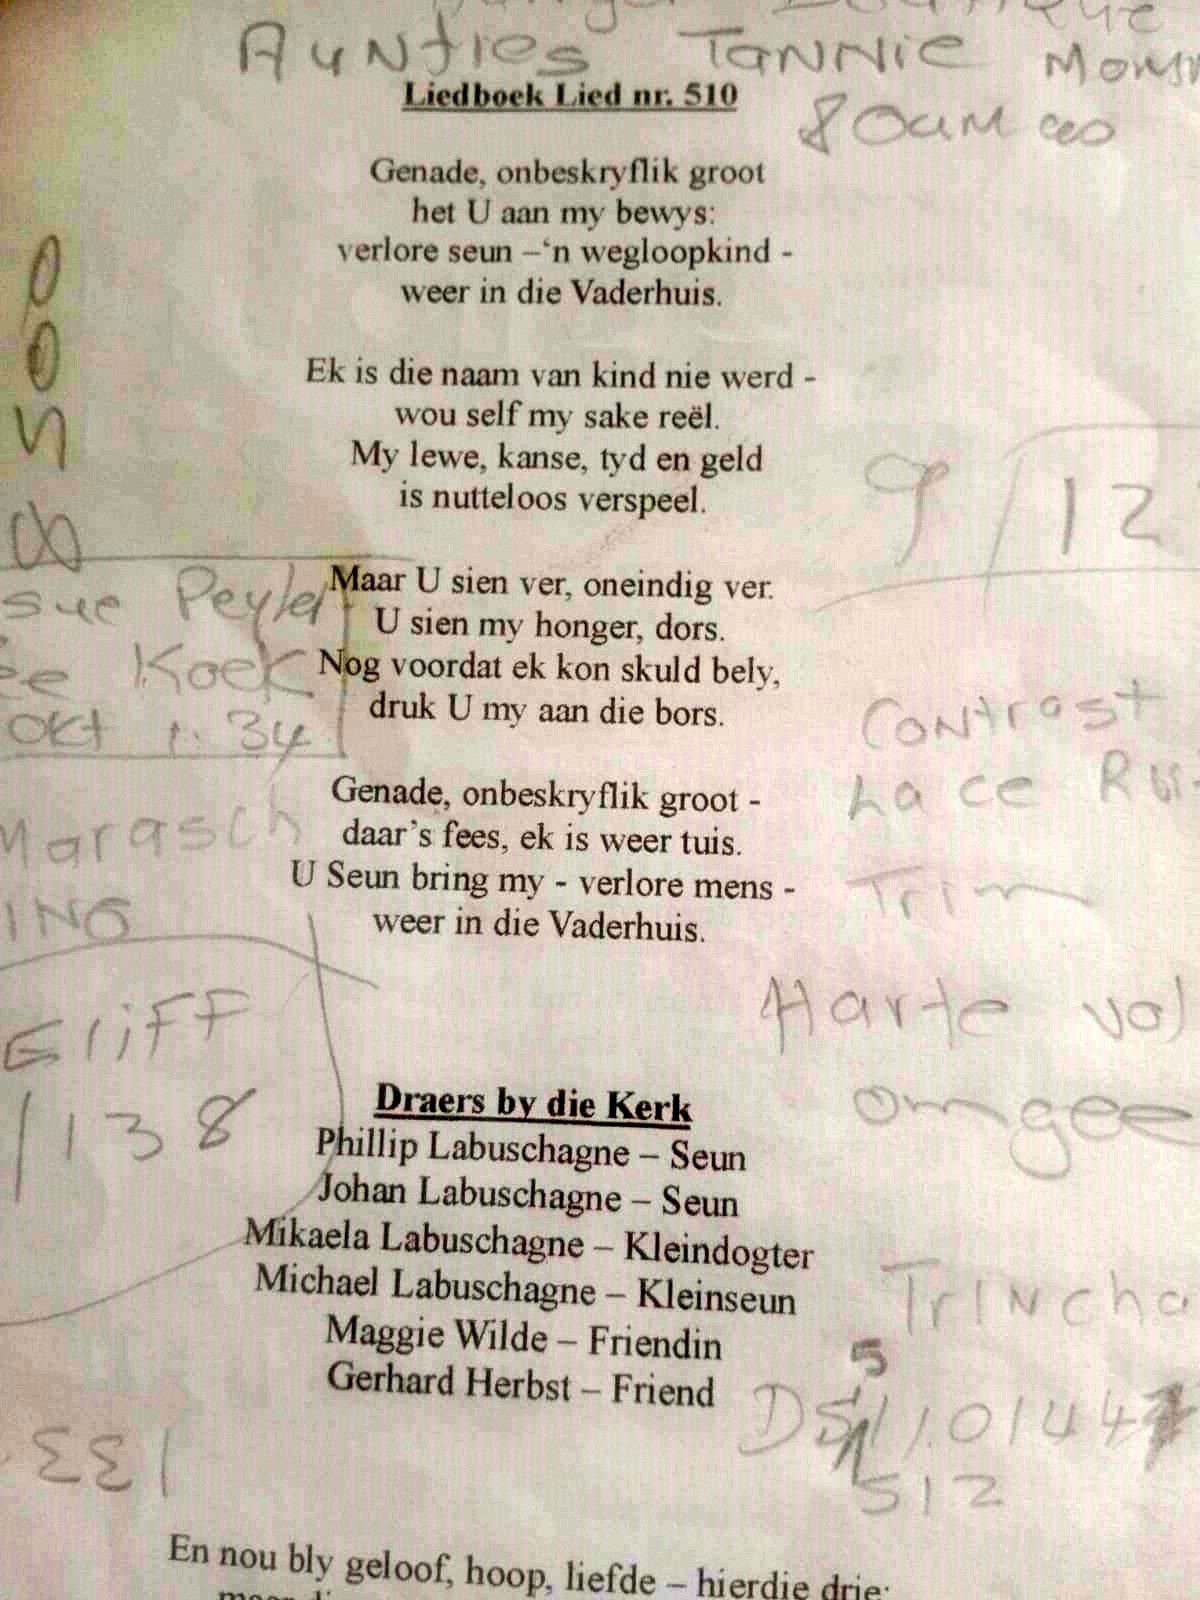 Aunties Tannie
Liedboek Lied nr. 510
Genade, onbeskryflik groot
het U aan my bewys:
verlore seun –‘n wegloopkind -
weer in die Vaderhuis.
Ek is die naam van kind nie werd -
wou self my sake reël.
My lewe, kanse, tyd en geld
is nutteloos verspeel.
9 12
Maar U sien ver, oneindig ver.
U sien my honger, dors.
Nog voordat ek kon skuld bely,
druk U my aan die bors.
sue
Koek
okt 1:34
Contrast
Lace
Trim
Genade, onbeskryflik groot -
daar’s fees, ek is weer tuis.
U Seun bring my - verlore mens -
weer in die Vaderhuis.
Marasch
ING
Harte vol
omgee
138
Draers by die Kerk
Phillip Labuschagne – Seun
Johan Labuschagne – Seun
Mikaela Labuschagne – Kleindogter
Michael Labuschagne – Kleinseun
Maggie Wilde – Friendin
Gerhard Herbst – Friend
Trincha
5
512
133
En nou bly geloof, hoop, liefde – hierdie drie;